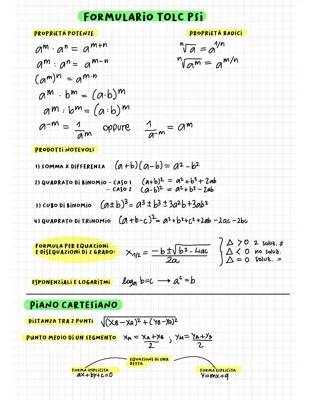 FORMULARIO TOLC PSI
PROPRIETÀ POTENZE
PROPRIETÀ RADICI
aᵐ · aⁿ = aᵐ⁺ⁿ
ⁿ√a = a^1/n
aᵐ : aⁿ = aᵐ⁻ⁿ
ⁿ√aᵐ = a^m/n
(aᵐ)ⁿ = a^m·n
aᵐ · bᵐ = (a·b)ᵐ
aᵐ : bᵐ = (a:b)ᵐ
a⁻ᵐ = 1/aᵐ oppure 1/a⁻ᵐ = aᵐ
PRODOTTI NOTEVOLI
1) SOMMA X DIFFERENZA (a+b)(a-b) = a² - b²
2) QUADRATO DI BINOMIO - CASO 1 (a+b)² = a² + b² + 2ab
- CASO 2 (a-b)² = a² + b² - 2ab
3) CUBO DI BINOMIO (a±b)³ = a³ ± b³ ± 3a²b + 3ab²
4) QUADRATO DI TRINOMIO (a+b-c)² = a²+b²+c²+2ab-2ac-2bc
FORMULA PER EQUAZIONI
E DISEQUAZIONI DI 2 GRADO:
x₁/₂ = -b ± √b² - 4ac / 2a
Δ > 0 2 solut. ≠
Δ < 0 no solut.
Δ = 0 solut. =
ESPONENZIALI E LOGARITMI logₐ b = c → aᶜ = b
PIANO CARTESIANO
DISTANZA TRA 2 PUNTI √(x_B - x_A)² + (y_B - y_A)²
PUNTO MEDIO DI UN SEGMENTO x_M = x_A + x_B / 2 ; y_M = y_A + y_B / 2
EQUAZIONE DI UNA
RETTA
FORMA IMPLICITA
ax+by+c=0
FORMA ESPLICITA
y=mx+q